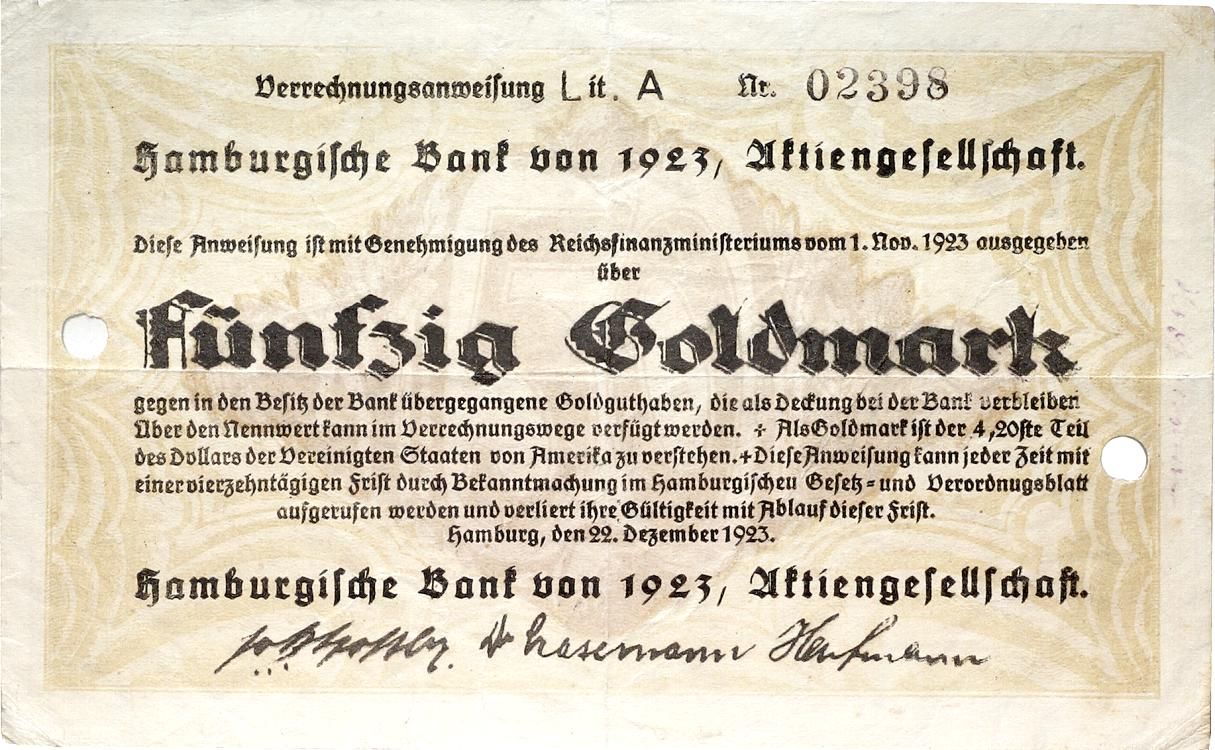 Verrechnungsanweisung Lit. A Nr. 02398
Hamburgische Bank von 1923, Aktiengesellschaft.
Diese Anweisung ist mit Genehmigung des Reichsfinanzministeriums vom 1. Nov. 1923 ausgegeben
über
Fünfzig Goldmark
gegen in den Besitz der Bank übergegangene Goldguthaben, die als Deckung bei der Bank verbleiben
Über den Nennwert kann im Verrechnungswege verfügt werden. + Als Goldmark ist der 4,20ste Teil
des Dollars der Vereinigten Staaten von Amerika zu verstehen. + Diese Anweisung kann jeder Zeit mit
einer vierzehntägigen Frist durch Bekanntmachung im Hamburgischeu Gesetz- und Verordnugsblatt
aufgerufen werden und verliert ihre Gültigkeit mit Ablauf dieser Frist.
Hamburg, den 22. Dezember 1923.
Hamburgische Bank von 1923, Aktiengesellschaft.